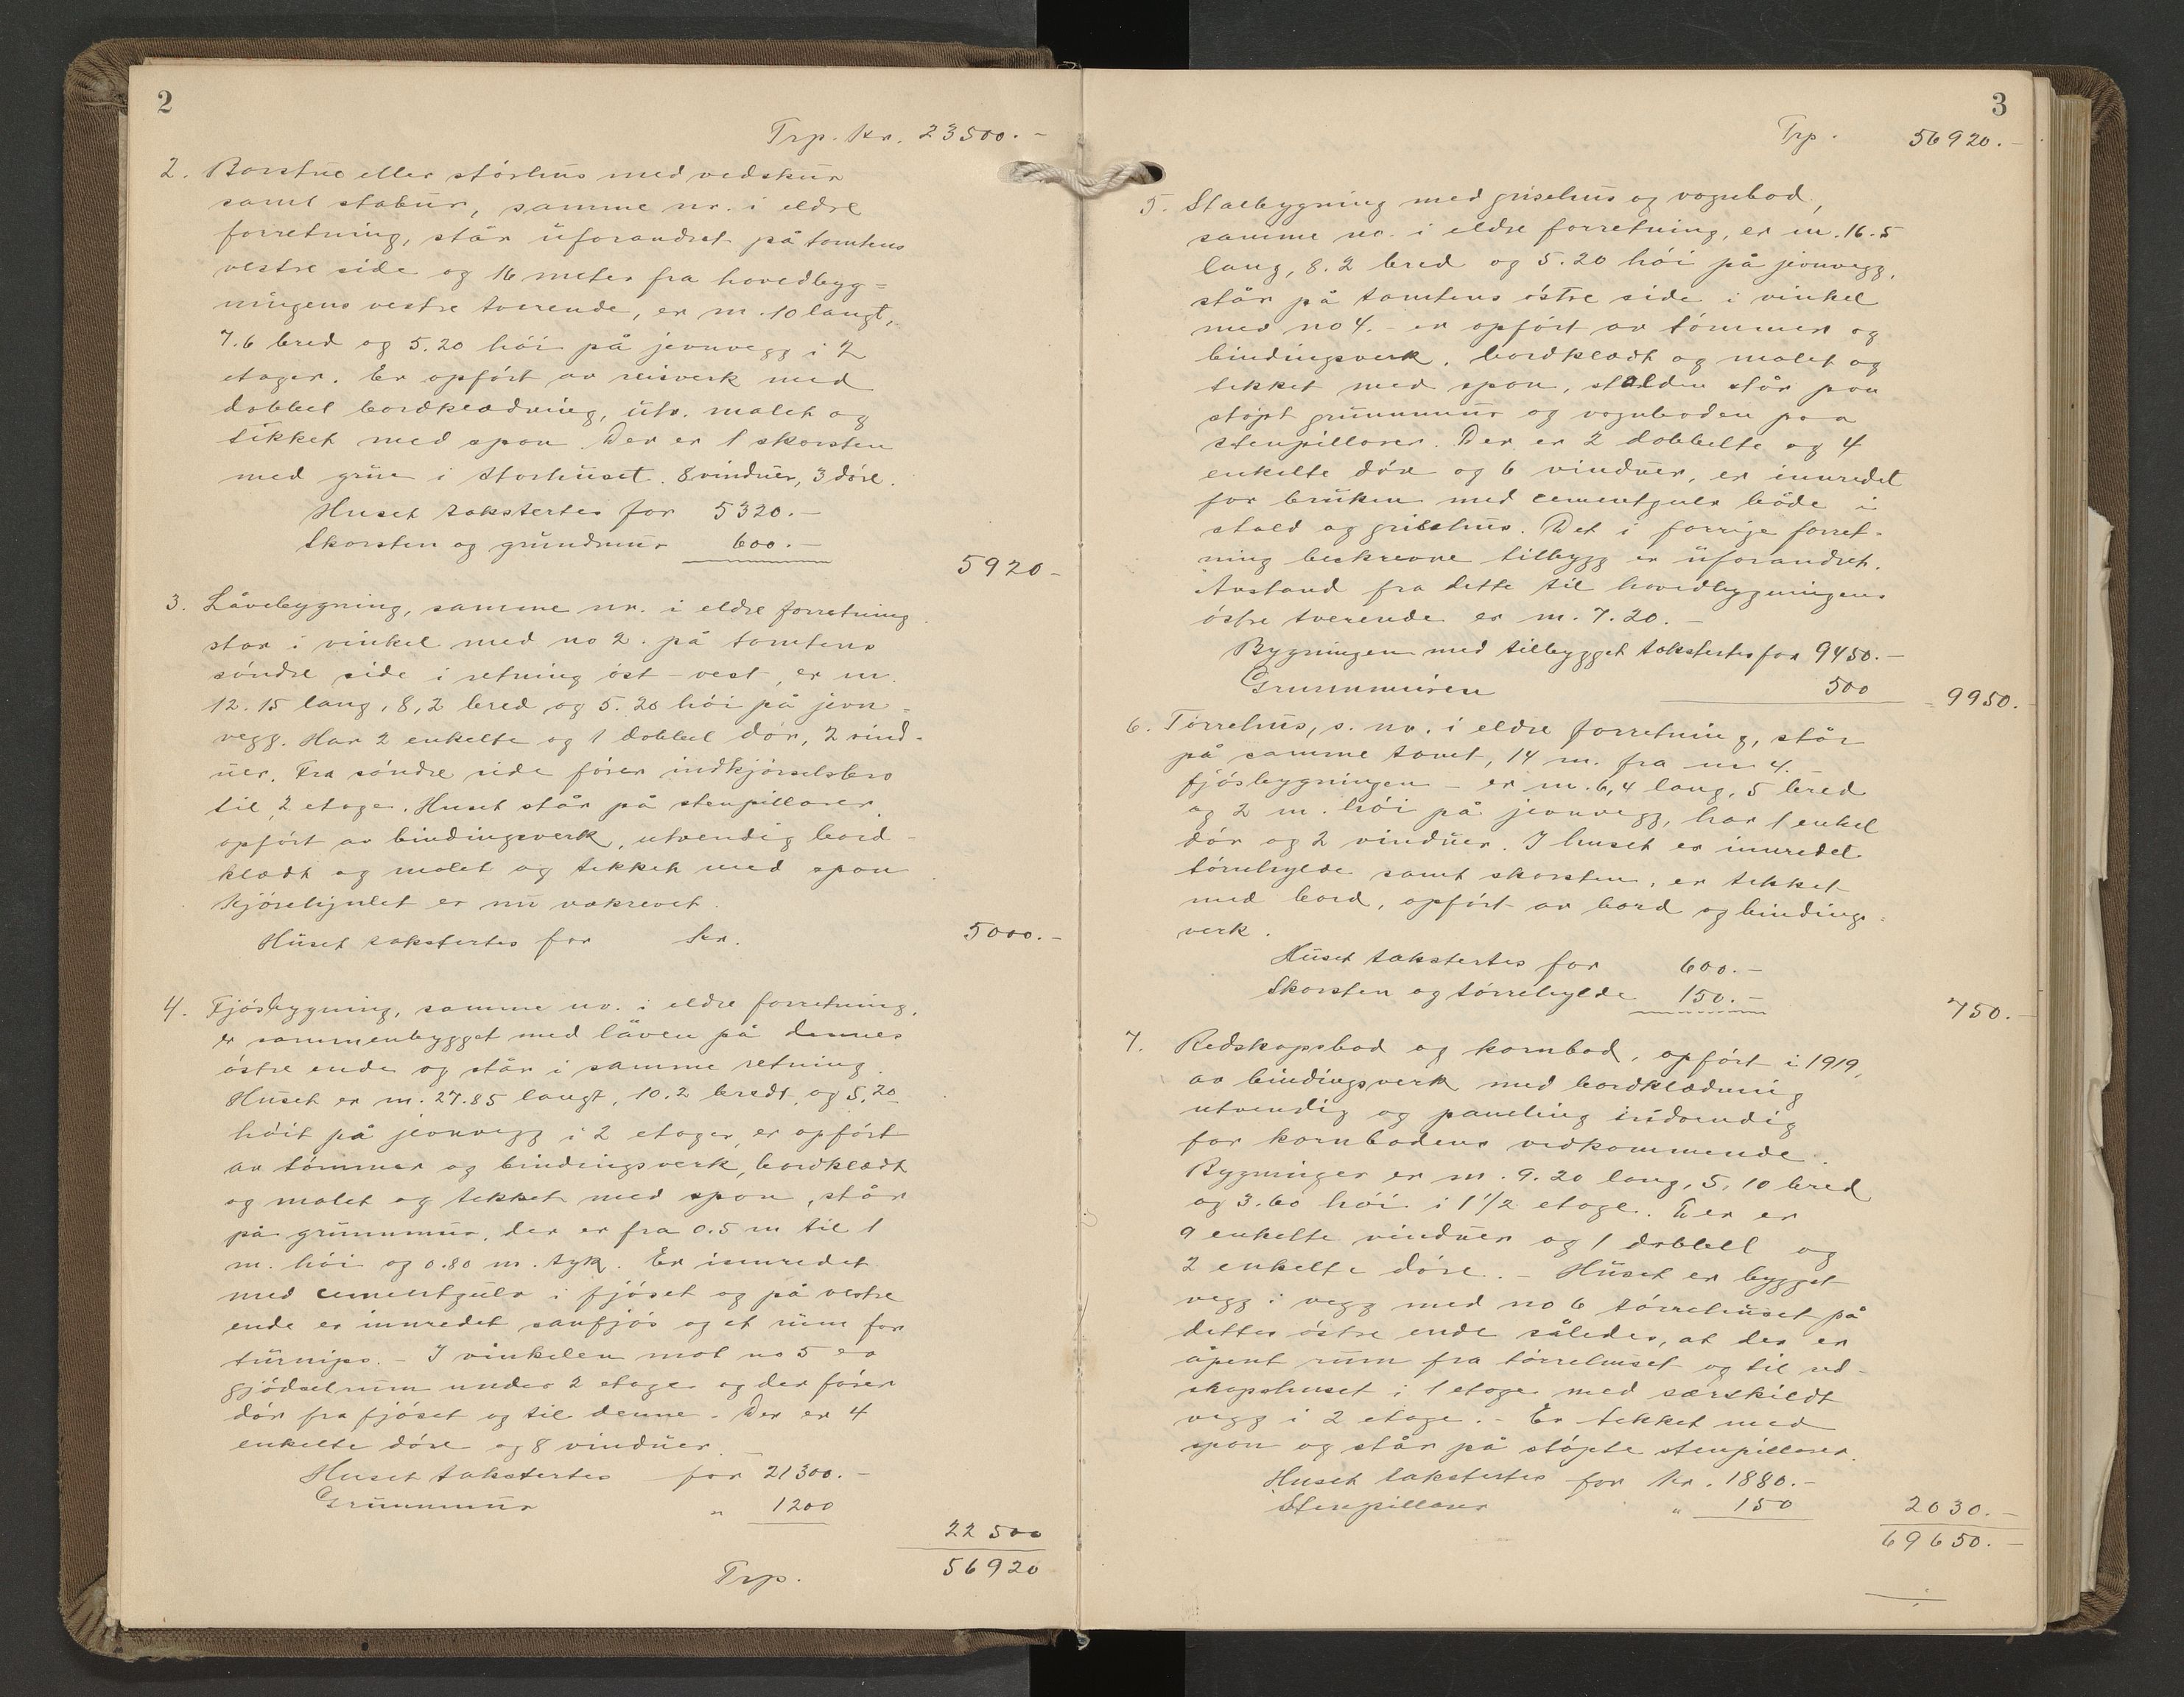 2
Trp. Kr. 23500.-
2. Borstue eller størhus med vedskur
samt stabur, samme nr. i eldre
forretning, står uforandret på tomtens
vestre side og 16 meter fra hovedbyg=
ningens vestre tverende, er m. 10 langt,
7.6 bred og 5.20 höi på jevnvegg i 2
etager. Er opfört av reisverk med
dobbel bordklædning, utv. malet og
tekket med spon. Der er 1 skorsten
med grue i storhuset. 8 vinduer, 3 döre.
Huset takstertes for 5320.-
Skorsten og grundmur 600.-
5920-
3. Låvebygning, samme nr. i eldre forretning
star i vinkel med no 2. på tomtens
söndre side i retning öst-vest, er m.
12.15 lang, 8,2 bred og 5.20 höi på jevn-
vegg. Har 2 enkelte og 1 dobbel dör, 2 vind-
uer. Fra söndre side förer indkjörselsbro
til 2 etage. Huset står på stenpillarer,
opfört av bindingsverk, utvendig bord-
klædt og malet og tekket med spon.
Kjörehjulet er nu vakrevet.
Huset takstertes for Kr. 5000.-
4. Fjösbygning, samme nr. i eldre forretning,
er sammenbygget med låven på dennes
östre ende og står i samme retning.
Huset er m. 27.85 langt, 10.2 bredt og 5.20
höit på jevnvegg i 2 etager, er opfört
av tömmer og bindingsverk, bordklædt
og malet og tekket med spon, står
på grunnmur, der er fra 0.5 m til 1
m. höi og 0.80 m. tyk. Er innredet
med cementgulv i fjöset og på vestre
ende er innredet saufjös og et rum for
turnips. - I vinkelen mot no 5 er
gjödselrum under 2 etage og der förer
dör fra fjöset og til denne. Der er 4
enkelte döre og 8 vinduer.
Huset takstertes for 21300.-
Grunnmur " 1200
22500
Trp. 56920
3
Trp. 56920.-
5. Stalbygning med grisehus og vognbod,
samme nr. i eldre forretning, er m. 16.5
lang, 8.2 bred og 5.20 höi på jevnvegg,
står på tomtens östre side i vinkel
med no 4. - er opfört av tömmer og
bindingsverk, bordklædt og malet og
tekket med spon, stalden står paa
stöpt grunnmur og vognboden paa
stenpillarer. Der er 2 dobbelte og 4
enkelte döre og 6 vinduer, er innredet
for bruken med cementgulv både i
stald og grisehus. Det i forrige forret-
ning beskrevne tilbygg er uforandret.
Avstand fra dette til hovedbygningens
östre tverende er m. 7.20.-
Bygningen med tilbygget takstertes for 9450.-
Grunnmuren 500
9950.
6. Törrehus, s. nr. i eldre forretning, står
på samme tomt, 14 m. fra nr 4.
fjösbygningen - er m. 6,4 lang, 5 bred
og 2 m. höi på jevnvegg, har 1 enkel
dör og 2 vinduer. I huset er innredet
törrehylde samt skorsten, er tekket
med bord, opfört av bord og bindings-
verk.
Huset takstertes for 600.-
Skorsten og törrehylde 150.-
750.-
7. Redskapsbod og kornbod, opfört i 1919,
av bindingsverk med bordklædning
utvendig og paneling indvendig
for kornbodens vedkommende.
Bygninger er m. 9.20 lang, 5,10 bred
og 3.60 höi i 1 1/2 etage. Der er
9 enkelte vinduer og 1 dobbell og
2 enkelte döre. - Huset er bygget
vegg i vegg med no 6 törrehuset på
dettes östre ende således, at der er
åpent rum fra törrehuset og til red-
skapshuset i 1 etage med særskildt
vegg i 2 etage. - Er tekket med
spon og står på stöpte stenpillarer.
Huset takstertes for Kr. 1880.-
Stenpillarer " 150
2030.-
69650.-